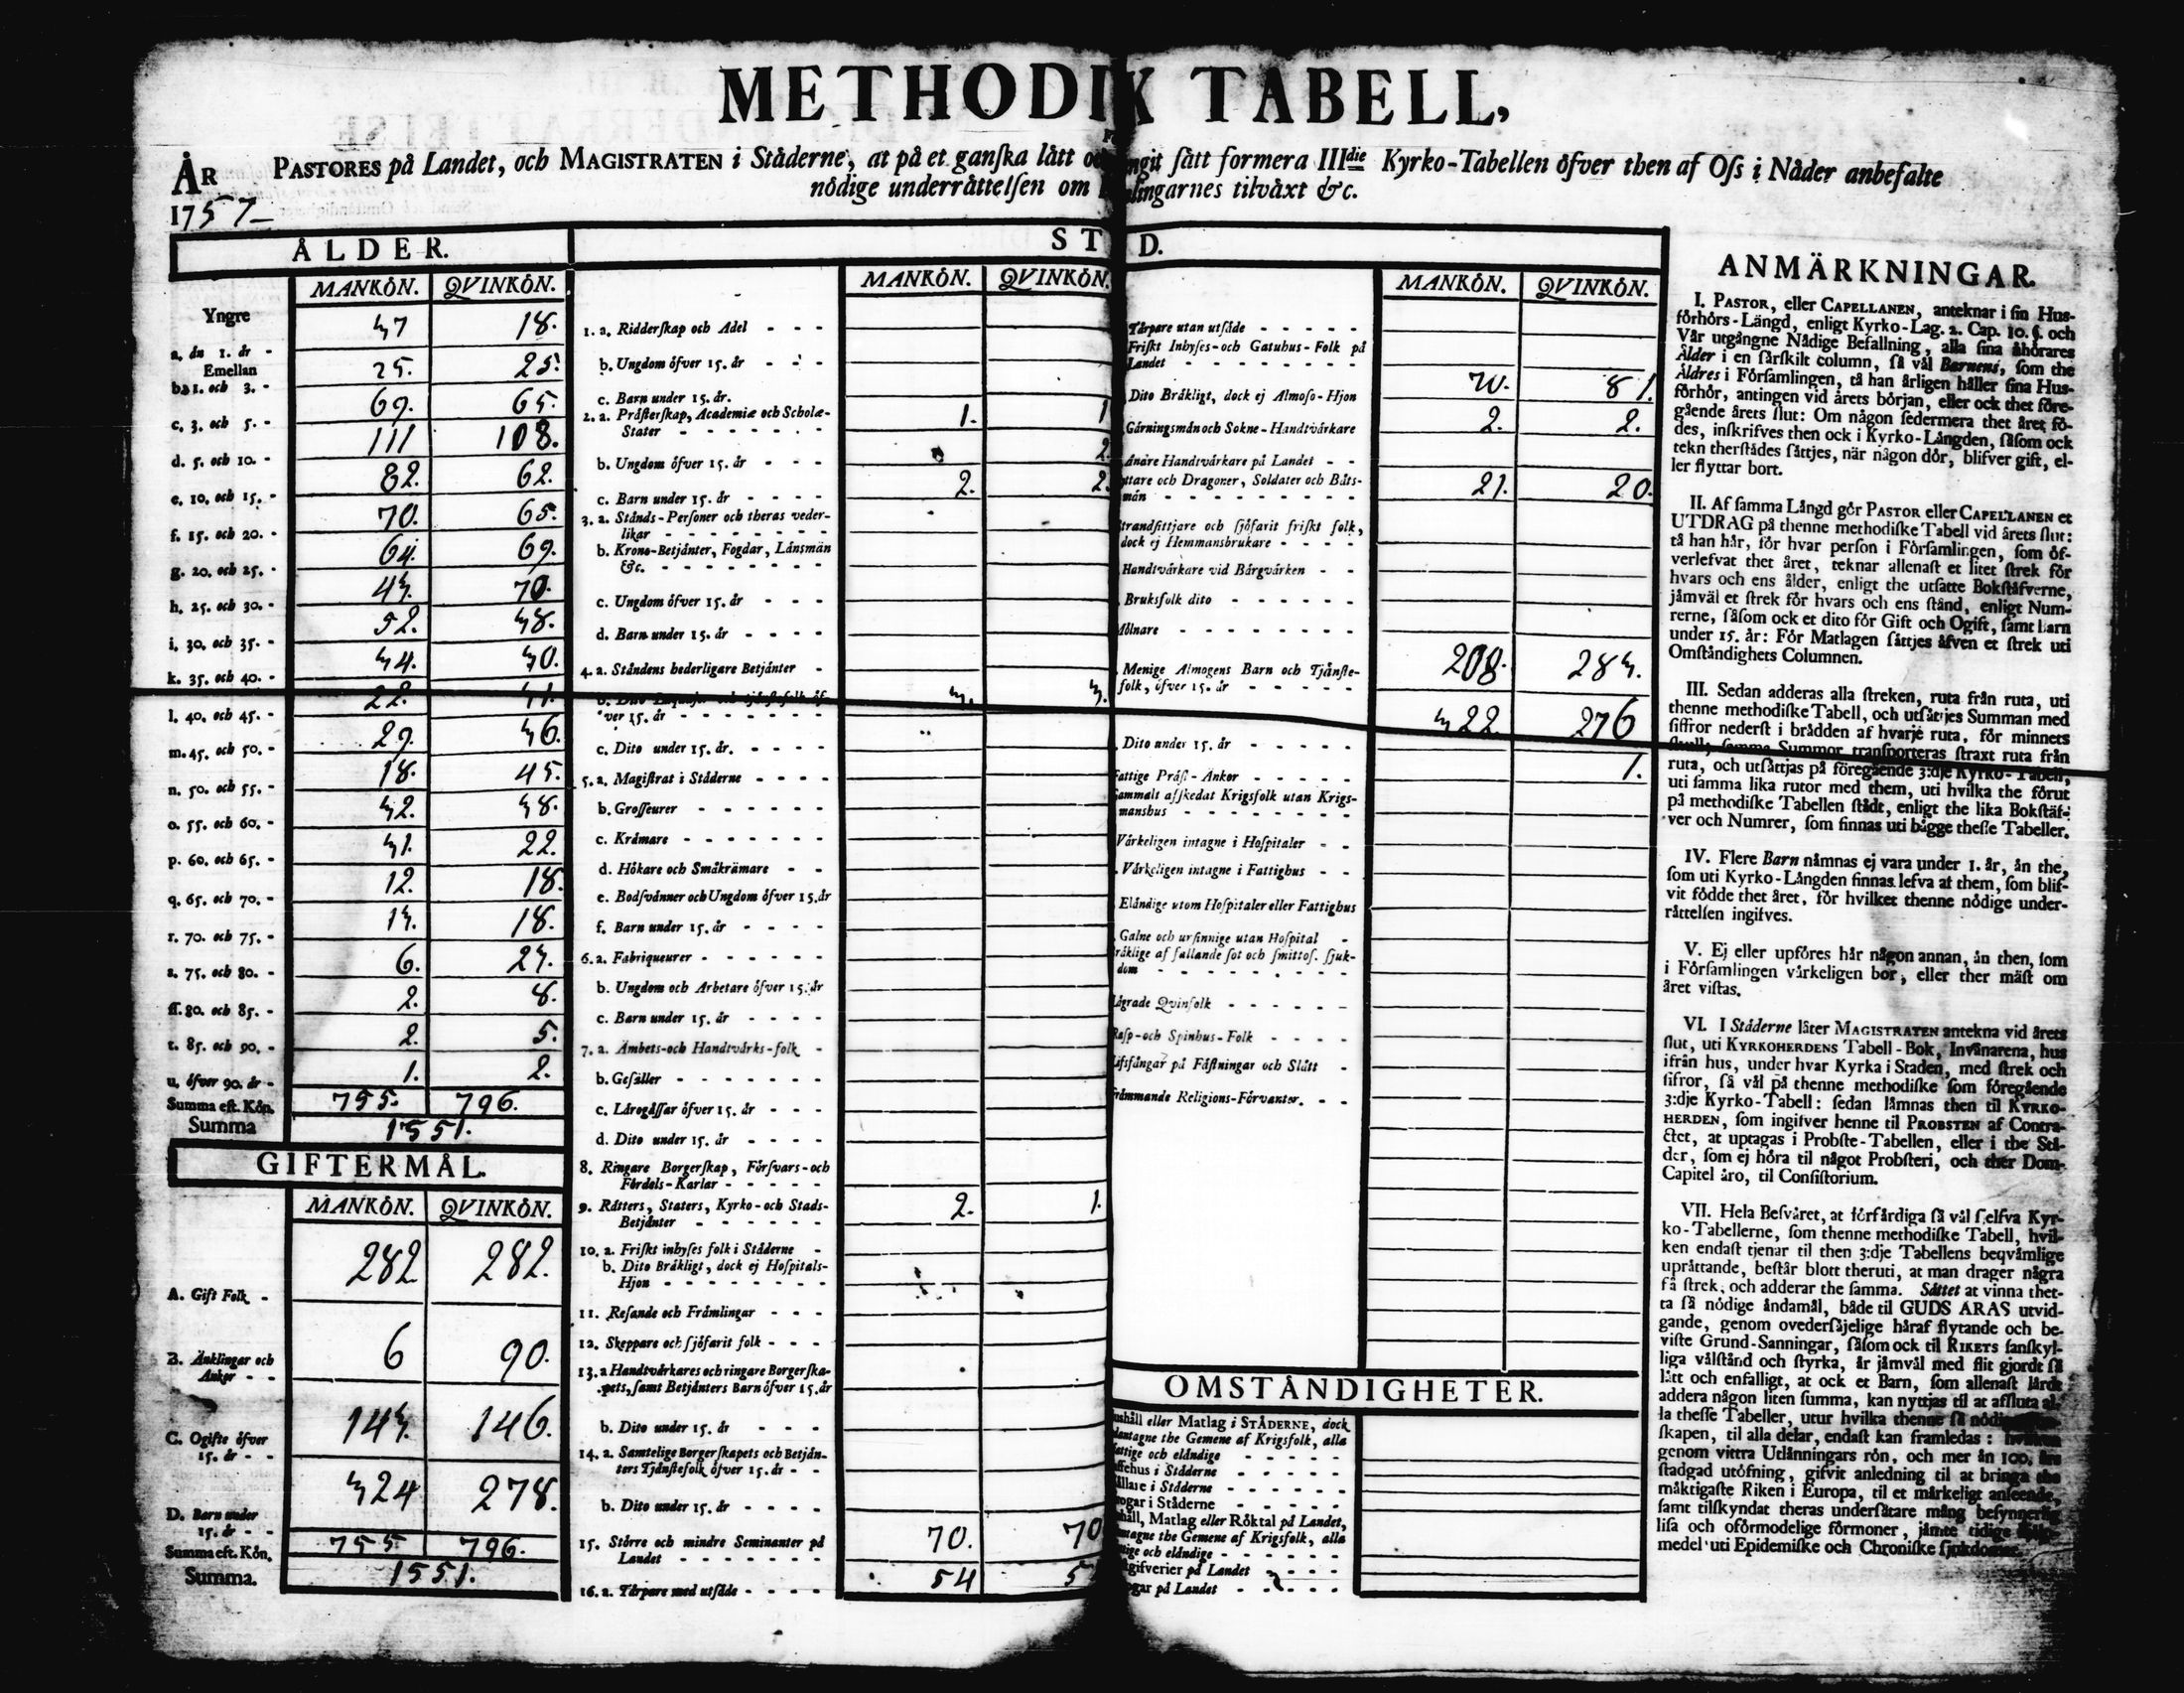 METHODIK TABELL,
ÅR PASTORES på Landet, och MAGISTRATEN i Ståderne, at på et ganſka lått ſått formera IIIdie Kyrko-Tabellen ȯfver then af Oſs i Nåder anbefalte
1757 nödige underråttelſen om tilvåxt &c.
ÅLDER.
MANKÖN. QVINKÖN.
Yngre
a. än 1. år - 47 18.
Emellan
b. 1. och 3. - 25. 25.
c. 3. och 5. - 69. 65.
d. 5. och 10. - 111 108.
e. 10. och 15. - 82. 62.
f. 15. och 20. - 70. 65.
g. 20. och 25. - 64. 69.
h. 25. och 30. - 44. 70.
i. 30. och 35. - 52. 48.
k. 35. och 40. - 44. 40.
l. 40. och 45. - 22. 41.
m. 45. och 50. - 29. 46.
n. 50. och 55. - 18. 45.
o. 55. och 60. - 42. 48.
p. 60. och 65. - 41. 22.
q. 65. och 70. - 12. 18.
r. 70. och 75. - 14. 18.
s. 75. och 80. - 6. 24.
ſſ. 80. och 85. - 2. 8.
t. 85. och 90. - 2. 5.
u. ȯfver 90. år - 1. 2.
Summa eft. Kön. 755. 796.
Summa 1551.
GIFTERMÅL.
MANKÖN. QVINKÖN.
A. Gift Folk - 282 282.
B. Änklingar och
Änkor - - 6 90.
C. Ogifte öfver
15. år - - 144. 146.
D. Barn under
15. år - - 424 278.
Summa eft. Kön. 755 796.
Summa. 1551.
ST D.
MANKÖN. QVINKÖN.
1. a. Ridderſkap och Adel - - -
b. Ungdom öfver 15. år - - -
c. Barn under 15. år.
2. a. Pråſterſkap, Academiæ och Scholæ-
Stater - - - - - - - 1. 1
b. Ungdom öfver 15. år - - - 2.
c. Barn under 15. år - - - - 2. 2.
3. a. Stånds-Perſoner och theras veder-
likar - - - - - - - -
b. Krono-Betjänter, Fogdar, Länsmän
&c. - - - - - - - -
c. Ungdom öfver 15. år - - - -
d. Barn under 15. år - - - -
4. a. Ståndens hederligare Betjänter -
b. Dito
ver 15. år - - - - - - - 4. 4.
c. Dito under 15. år. - - - -
5. a. Magiſtrat i Ståderne - - - -
b. Groſſeurer - - - - - -
c. Kråmare - - - - - - -
d. Hökare och Småkrämare - -
e. Bodſvånner och Ungdom öfver 15. år
f. Barn under 15. år - - - -
6. a. Fabriqueurer - - - - - -
b. Ungdom och Arbetare öfver 15. år
c. Barn under 15. år - - - -
7. a. Ämbets-och Handtvårks-folk -
b. Geſäller - - - - - - -
c. Lårogåſſar öfver 15. år - - -
d. Dito under 15. år - - - -
8. Ringare Borgerſkap, Förſvars-och
Fördels-Karlar - - - - -
9. Råtters, Staters, Kyrko-och Stads-
Betjänter - - - - - - 2. 1.
10. a. Friſkt inhyſes folk i Ståderne -
b. Dito Bråkligt, dock ej Hoſpitals-
Hjon - - - - - - - -
11. Reſande och Främlingar - - -
12. Skeppare och ſjöfarit folk - - -
13. a Handtvårkares och ringare Borgerſka-
pets, ſamt Betjänters Barn öfver 15. år
b. Dito under 15. år - - -
14. a. Samtelige Borgerſkapets och Betjän-
ters Tjänſtefolk öfver 15. år - -
b. Dito under 15. år - - - -
15. Större och mindre Hemmanter på
Landet - - - - - - - 70. 70
16. a. Tårpare med utſåde - - - - 54
MANKÖN. QVINKÖN.
Tårpare utan utſåde - - - - -
Friſkt Inhyſes-och Gatuhus-Folk på
Landet - - - - - - - -
Dito Bråkligt, dock ej Almoſo-Hjon 81.
Gårningsmån och Sokne-Handtvårkare 2. 2.
Andre Handtvårkare på Landet - -
och Dragoner, Soldater och Båts-
mån - - - - - - - - 21. 20.
Strandſittjare och ſjöfarit friſkt folk,
dock ej Hemmansbrukare - - - -
Handtvårkare vid Bårgvårken - -
Bruksfolk dito - - - - - -
Mölnare - - - - - - - -
Menige Almogens Barn och Tjänſte-
folk, öfver 15. år - - - - - 208. 284.
Dito under 15. år - - - - - 422 276
Fattige Pråſt-Änkor - - - - - 1.
Gammalt afſkedat Krigsfolk utan Krigs-
manshus - - - - - - - -
Vårkeligen intagne i Hoſpitaler - -
Vårkeligen intagne i Fattighus - -
Elåndige utom Hoſpitaler eller Fattighus
Galne och urſinnige utan Hoſpital -
Bråklige af fallande ſot och ſmittoſ. ſjuk-
dom - - - - - - - -
Lågrade Qvinfolk - - - - -
Raſp-och Spinhus-Folk - - - -
Lifsfångar på Fåſtningar och Slått -
Fråmmande Religions-Förvanter. - -
OMSTÅNDIGHETER.
eller Matlag i STÅDERNE, dock
the Gemene af Krigsfolk, alla
fattige och elåndige - - - - -
i Ståderne - - - - -
i Ståderne - - - - - -
i Ståderne - - - - -
Matlag eller Röktal på Landet,
the Gemene af Krigsfolk, alla
och elåndige - - - - - -
på Landet - - - -
på Landet - - - -
ANMÄRKNINGAR.
I. PASTOR, eller CAPELLANEN, anteknar i ſin Hus-
förhörs-Längd, enligt Kyrko-Lag. 2. Cap. 10. §. och
Vår utgångne Nådige Befallning, alla ſina åhörares
Ålder i en ſärſkilt column, ſå väl Barnens, ſom the
Äldres i Förſamlingen, tå han årligen håller ſina Hus-
förhör, antingen vid årets början, eller ock thet före-
gående årets ſlut: Om någon ſedermera thet året fö-
des, inſkrifves then ock i Kyrko-Långden, ſåſom ock
tekn therſtådes ſåttjes, när någon dör, blifver gift, el-
ler flyttar bort.
II. Af ſamma Långd gör PASTOR eller CAPELLANEN et
UTDRAG på thenne methodiſke Tabell vid årets ſlut:
tå han hår, för hvar perſon i Förſamlingen, ſom öf-
verlefvat thet året, teknar allenaſt et litet ſtrek för
hvars och ens ålder, enligt the utſatte Bokſtäfverne,
jåmvål et ſtrek för hvars och ens ſtånd, enligt Num-
rerne, ſåſom ock et dito för Gift och Ogift, ſamt barn
under 15. år: För Matlagen ſåttjes åfven et ſtrek uti
Omſtåndighets Columnen.
III. Sedan adderas alla ſtreken, ruta från ruta, uti
thenne methodiſke Tabell, och utſåttjes Summan med
ſiffror nederſt i brådden af hvarje ruta, för minnets
ſkull; ſamma Summor tranſporteras ſtraxt ruta från
ruta, och utſåttjas på föregående 3:dje Kyrko-Tabell,
uti ſamma lika rutor med them, uti hvilka the förut
på methodiſke Tabellen ſtådt, enligt the lika Bokſtäf-
ver och Numrer, ſom finnas uti bågge theſſe Tabeller.
IV. Flere Barn nåmnas ej vara under 1. år, ån the,
ſom uti Kyrko-Långden finnas lefva af them, ſom blif-
vit födde thet året, för hvilket thenne nödige under-
råttelſen ingifves.
V. Ej eller upföres hår någon annan, ån then, ſom
i Förſamlingen vårkeligen bor, eller ther måſt om
året viſtas.
VI. I Ståderne låter MAGISTRATEN antekna vid årets
ſlut, uti KYRKOHERDENS Tabell-Bok, Invånarena, hus
ifrån hus, under hvar Kyrka i Staden, med ſtrek och
ſifror, ſå vål på thenne methodiſke ſom föregående
3:dje Kyrko-Tabell: ſedan låmnas then til KYRKO-
HERDEN, ſom ingifver henne til PROBSTEN af Contra-
ctet, at uptagas i Probſte-Tabellen, eller i the Stå-
der, ſom ej höra til något Probſteri, och ther Dom-
Capitel åro, til Conſiſtorium.
VII. Hela Beſvåret, at förfårdiga ſå vål ſjelfva Kyr-
ko-Tabellerne, ſom thenne methodiſke Tabell, hvil-
ken endaſt tjenar til then 3:dje Tabellens beqvåmlige
upråttande, beſtår blott theruti, at man drager några
få ſtrek, och adderar the ſamma. Såttet at vinna thet-
ta ſå nödige åndamål, både til GUDS ÄRAS utvid-
gande, genom overderſåjelige håraf flytande och be-
viſte Grund-Sanningar, ſåſom ock til RIKETS fanſkyl-
liga vålſtånd och ſtyrka, år jåmvål med flit gjordt ſå
lått och enfalligt, at ock et Barn, ſom allenaſt lårdt
addera någon liten ſumma, kan nyttjas til at affluta al-
la theſſe Tabeller, utur hvilka thenne ſå
ſkapen, til alla delar, endaſt kan framledas:
genom vittra Utlånningars rön, och mer ån 100. års
ſtadgad utöfning, gifvit anledning til at bringa the
måktigaſte Riken i Europa, til et mårkeligt anſeende,
ſamt tilſkyndat theras underſåtare mång
liſa och oförmodelige förmoner, jåmte tidige
medel uti Epidemiſke och Chroniſke ſjukdomar.